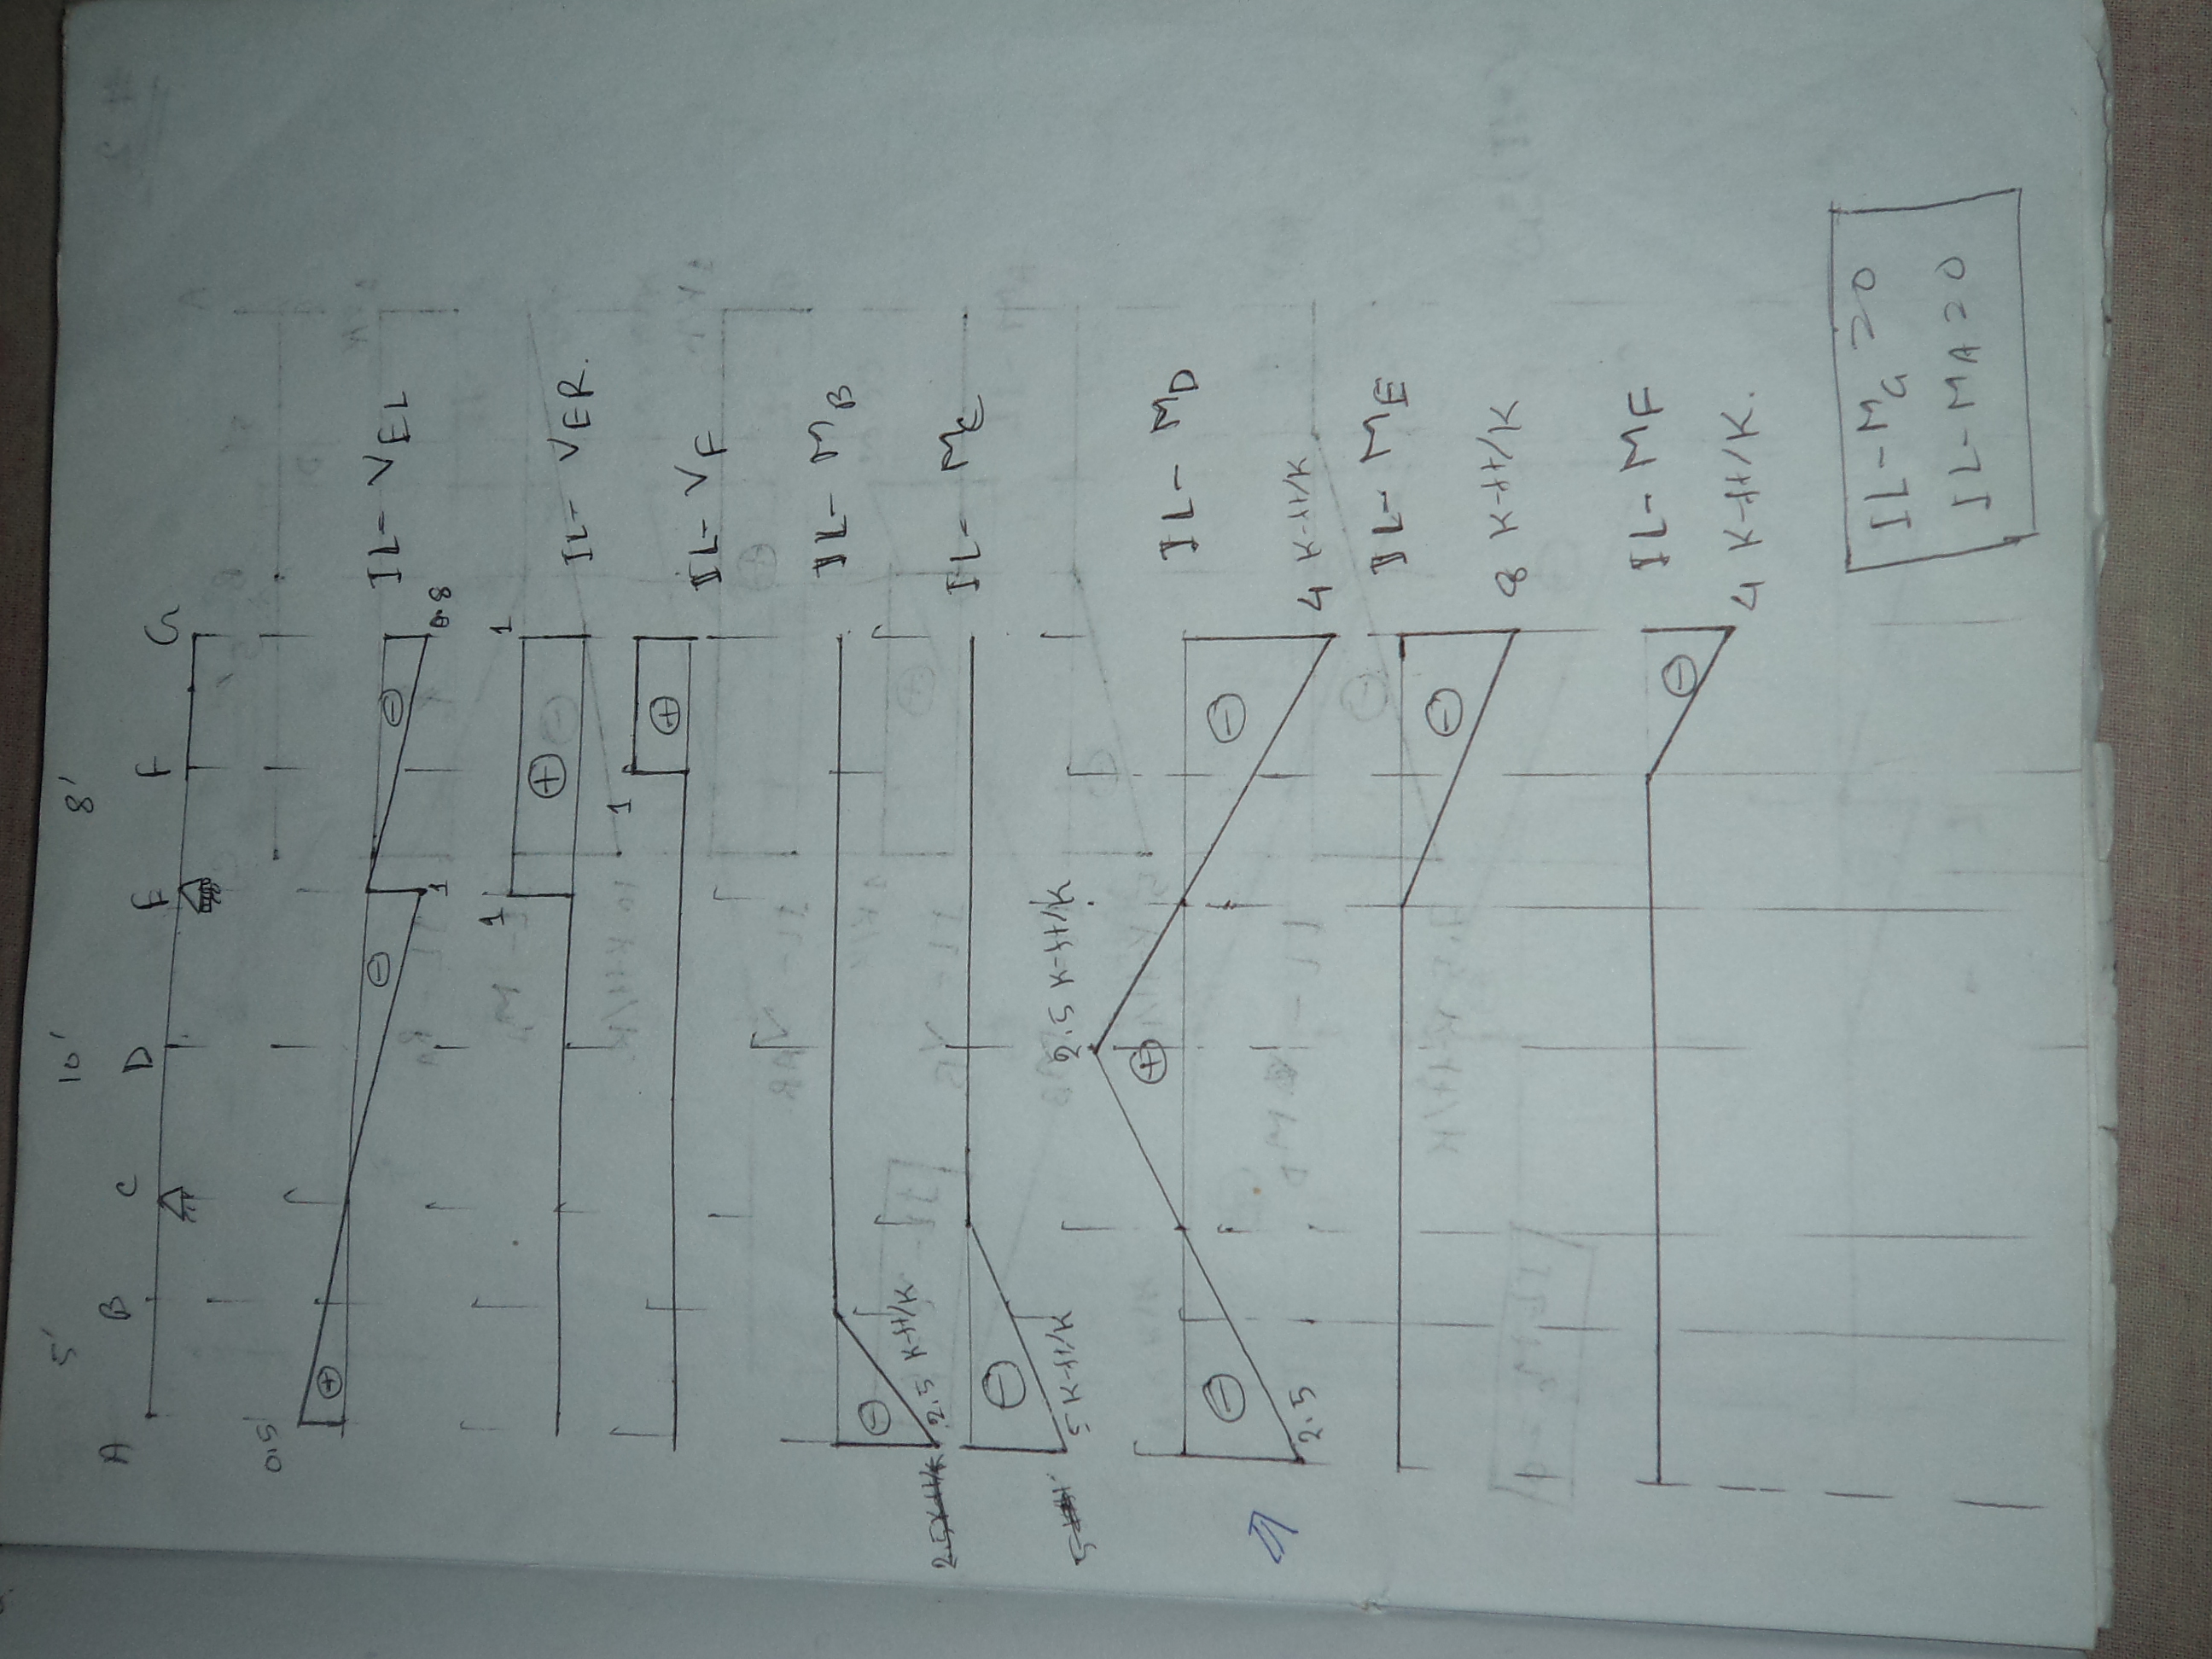 5' 10' 8'
A B C D E F G
0.5 1 0.8 IL- VEL
1 1 IL- VER.
1 IL- VF
2.5 K-ft/K IL- MB
5 K-ft/K IL- MC
2.5 2.5 K-ft/K IL- MD
4 K-ft/K
IL- ME
8 K-ft/K
IL- MF
4 K-ft/K.
IL- MG = 0
IL- MA = 0